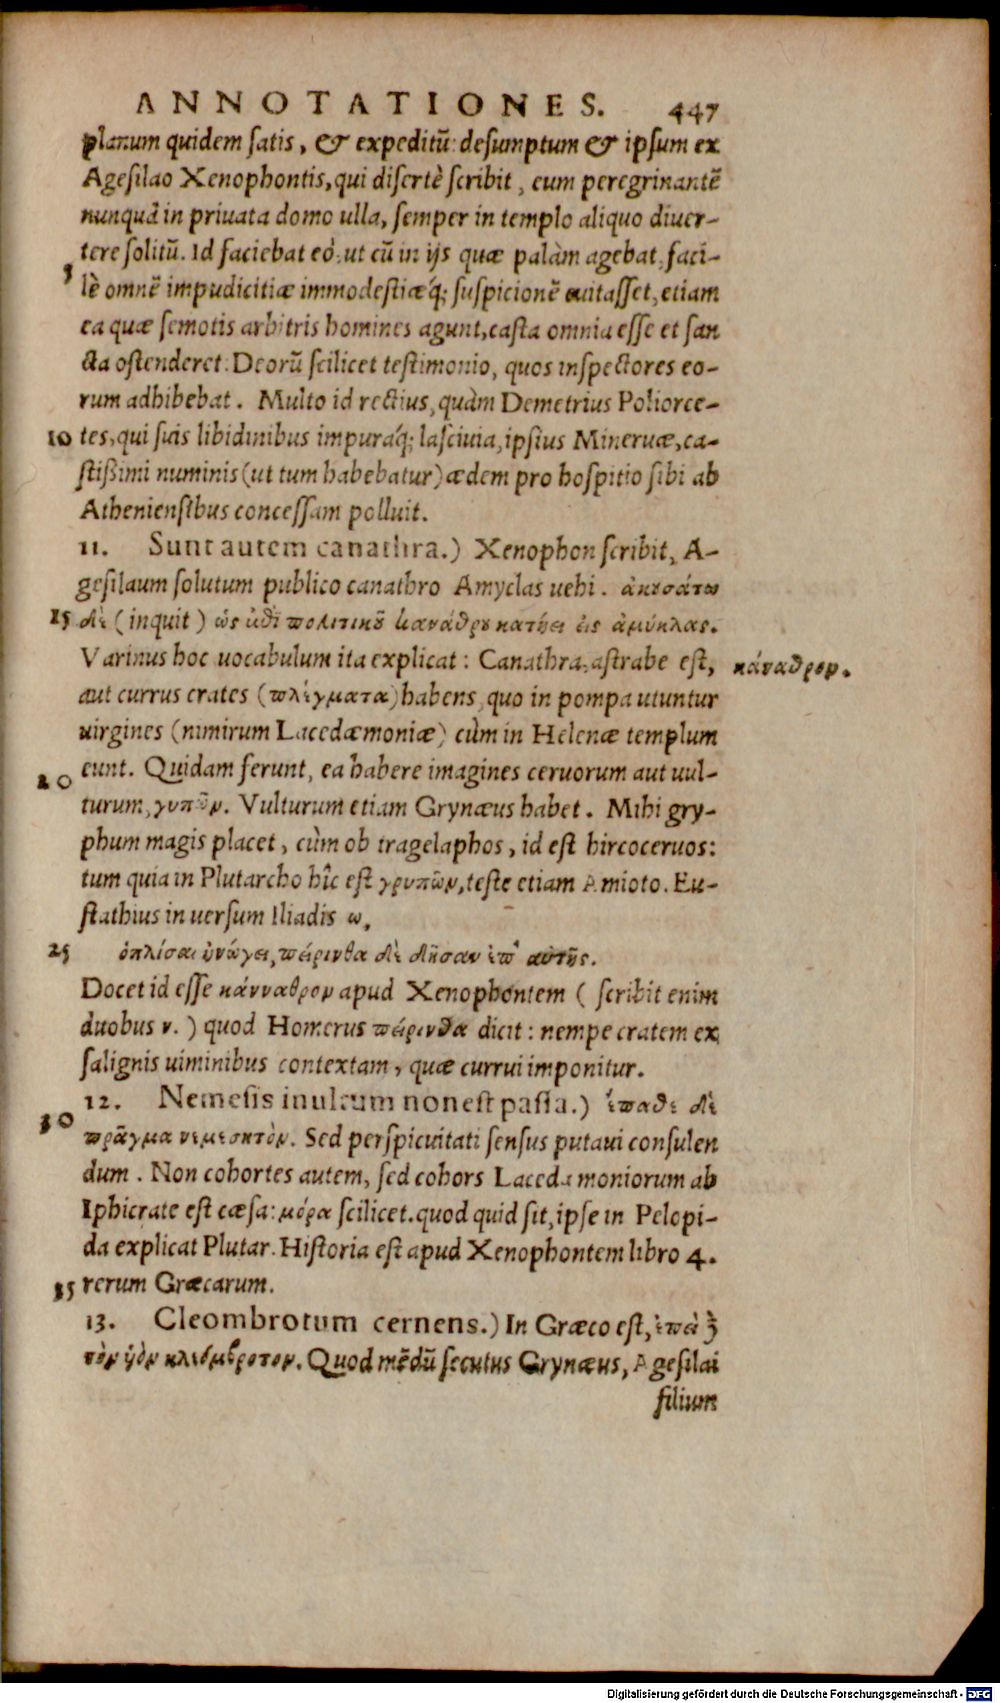 ANNOTATIONES. 447
planum quidem satis, & expeditũ: desumptum & ipsum ex
Agesilao Xenophontis, qui disertè scribit, eum peregrinantẽ
nunquã in priuata domo ulla, semper in templo aliquo diuer-
tere solitũ. Id faciebat eò, ut cũ in ijs quæ palàm agebat, faci-
5 lè omnẽ impudicitiæ immodestiæq́; suspicionẽ euitasset, etiam
ea quæ semotis arbitris homines agunt, casta omnia esse et san
cta ostenderet: Deorũ scilicet testimonio, quos inspectores eo-
rum adhibebat. Multo id rectius, quàm Demetrius Poliorce-
10 tes, qui suis libidinibus impuraq́; lasciuia, ipsius Mineruæ, ca-
stißimi numinis (ut tum habebatur) ædem pro hospitio sibi ab
Atheniensibus concessam polluit.
11. Sunt autem canathra.) Xenophon scribit, A-
gesilaum solutum publico canathro Amyclas uehi. ἀκουσάτω
15 δὲ (inquit) ὡς ἐπὶ πολιτικοῦ καννάθρου κατῄει εἰς ἀμύκλας.
Varinus hoc uocabulum ita explicat: Canathra, astrabe est,
κάναθρον.
aut currus crates (πλέγματα) habens, quo in pompa utuntur
uirgines (nimirum Lacedæmoniæ) cùm in Helenæ templum
20 eunt. Quidam ferunt, ea habere imagines ceruorum aut uul-
turum, γυπῶν. Vulturum etiam Grynæus habet. Mihi gry-
phum magis placet, cùm ob tragelaphos, id est hircoceruos:
tum quia in Plutarcho hîc est γρυπῶν, teste etiam Amioto. Eu-
stathius in uersum Iliadis ω,
25 ὁπλίσαι ἠνώγει, πείρινθα δὲ δῆσαν ἐπ' αὐτῆς.
Docet id esse κάνναθρον apud Xenophontem (scribit enim
duobus ν.) quod Homerus πείρινθα dicit: nempe cratem ex
salignis uiminibus contextam, quæ currui imponitur.
12. Nemesis inultum non est passa.) ἔπαθε δὲ
30 πρᾶγμα νεμεσητὸν. Sed perspicuitati sensus putaui consulen
dum. Non cohortes autem, sed cohors Lacedæmoniorum ab
Iphicrate est cæsa: μόρα scilicet. quod quid sit, ipse in Pelopi-
da explicat Plutar. Historia est apud Xenophontem libro 4.
35 rerum Græcarum.
13. Cleombrotum cernens.) In Græco est, ἐπεὶ δὲ
τὸν υἱὸν κλεόμβροτον. Quod mẽdũ secutus Grynæus, Agesilai
filium
Digitalisierung gefördert durch die Deutsche Forschungsgemeinschaft - DFG